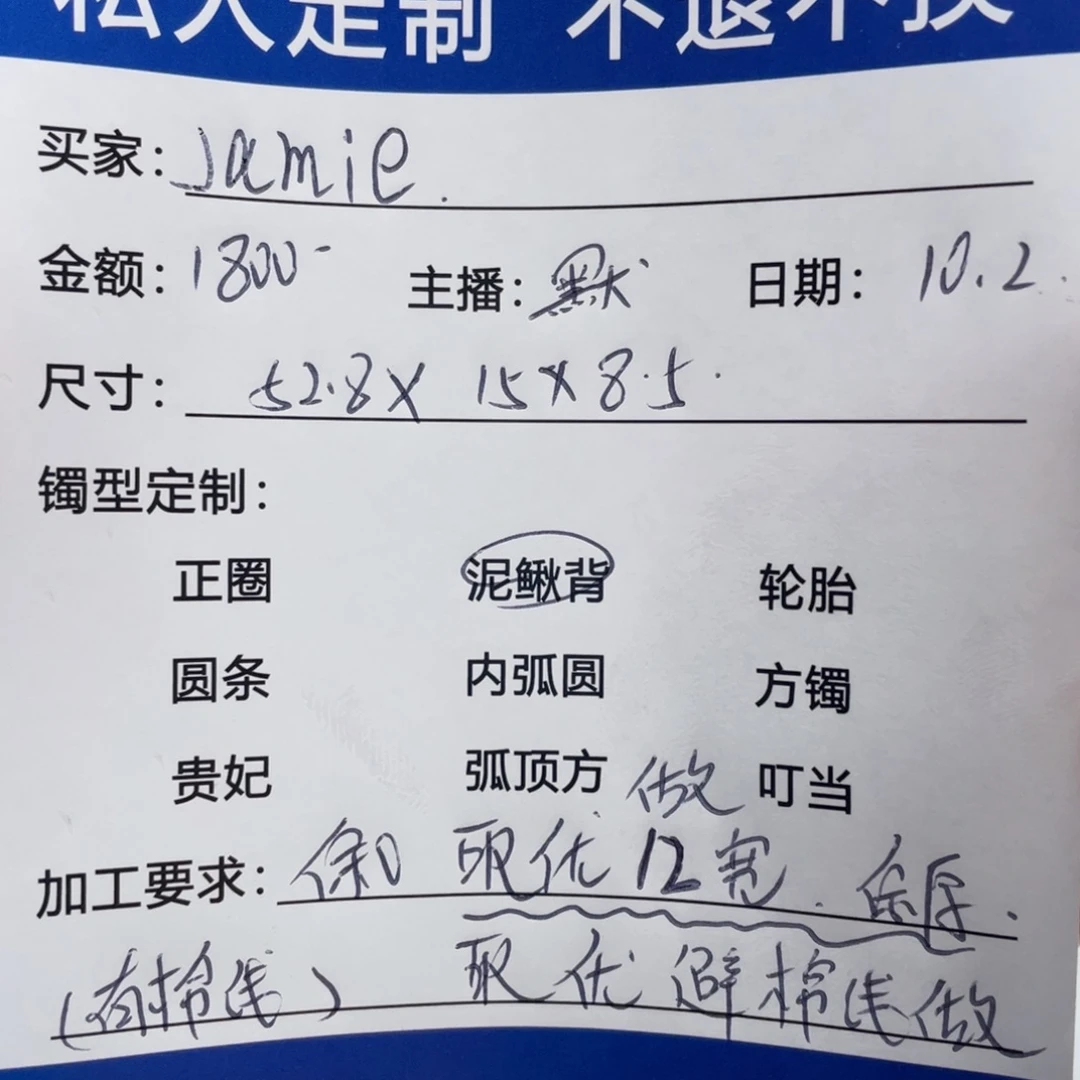 私人定制 不退不换
买家：Jamie.
金额：1800- 主播：默 日期：10.2.
尺寸：52.8X 15X8.5.
镯型定制：
正圈 泥鳅背 轮胎
圆条 内弧圆 方镯
贵妃 弧顶方 叮当
做
加工要求： 取优12宽. 保厚.
(有棉线) 取优避棉线做